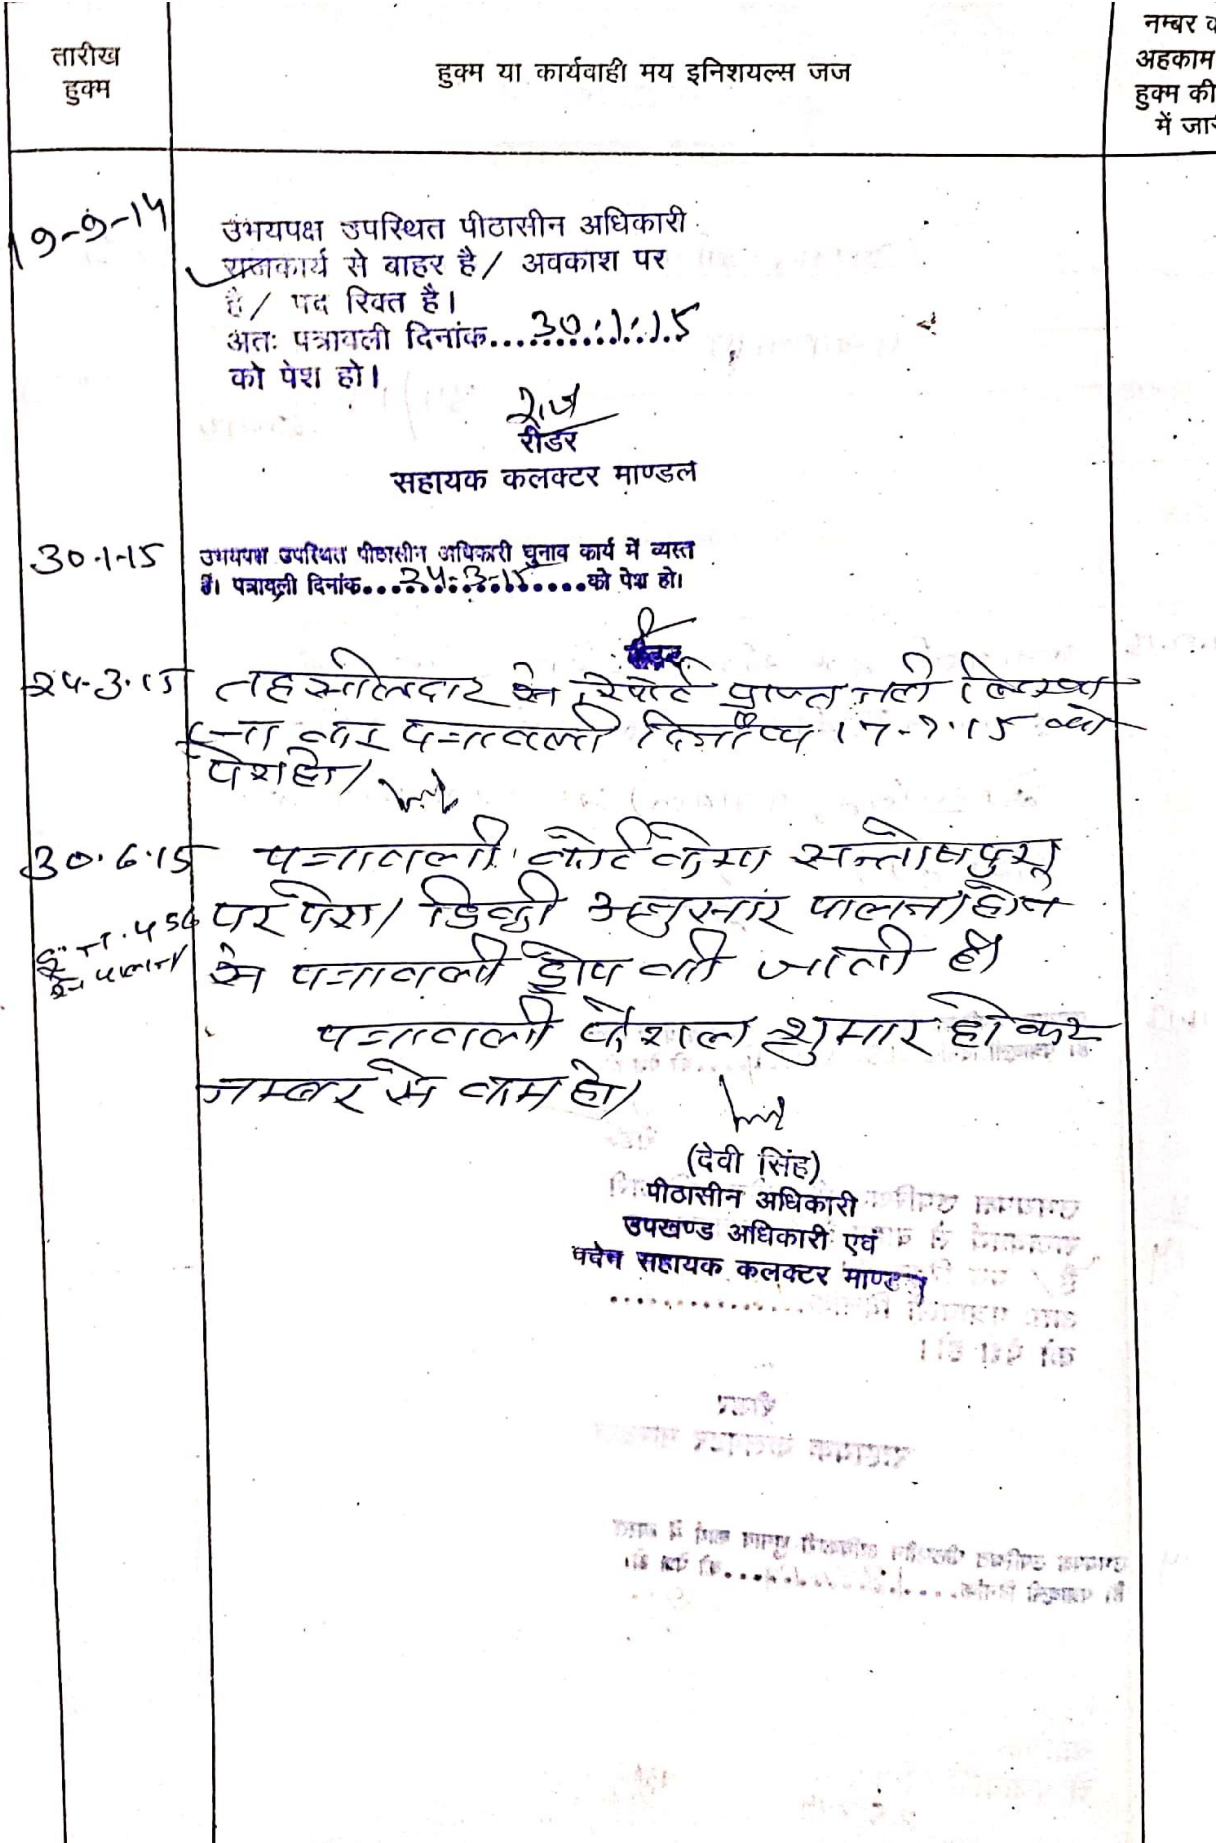 तारीख
हुक्म
हुक्म या कार्यवाही मय इनिशयल्स जज
नम्बर
अहकाम
हुक्म की
में
19-9-14
उभयपक्ष उपस्थित पीठासीन अधिकारी
राजकार्य से बाहर है / अवकाश पर
है / पद रिक्त है।
अतः पत्रावली दिनांक....30.1.15
को पेश हो।
रीडर
सहायक कलक्टर माण्डल
30-1-15
उभयपक्ष उपस्थित पीठासीन अधिकारी चुनाव कार्य में व्यस्त
है। पत्रावली दिनांक....24-3-15....को पेश हो।
रीडर
24-3-15
तहसीलदार से रिपोर्ट प्राप्त नही
पत्रावली दिनांक 17-7-15 को
पेश हो।
30.6.15
पत्रावली कोर्ट केम्प सन्तोषपुरा
पर पेश। डिक्री अनुसार पालना होने
से पत्रावली ड्रोप की जाती है।
पत्रावली फैशल शुमार होकर
नम्बर से कम हो।
(देवी सिंह)
पीठासीन अधिकारी
उपखण्ड अधिकारी एवं
पदेन सहायक कलक्टर माण्डल